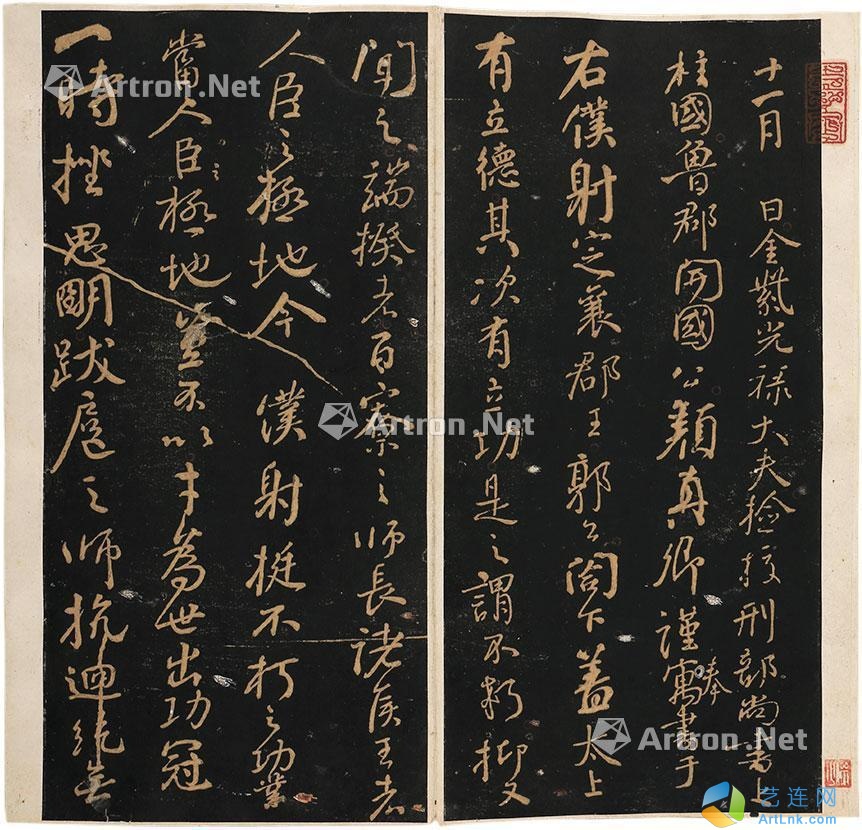 十一月 日金紫光祿大夫檢校刑部尚書上
柱國魯郡開國公顏真卿謹奉寓書于
右僕射定襄郡王郭公閣下蓋太上
有立德其次有立功是之謂不朽抑又
聞之端揆者百寮之師長諸侯王者
人臣之極地今 僕射挺不朽之功業
當人臣之極地豈不以才為世出功冠
一時挫思明跋扈之師抗迴紇無
Artron.Net
Artron.Net
Artron.Net
Artron.Net
Artron.Net
Artron.Net
艺连网
ArtLnk.com